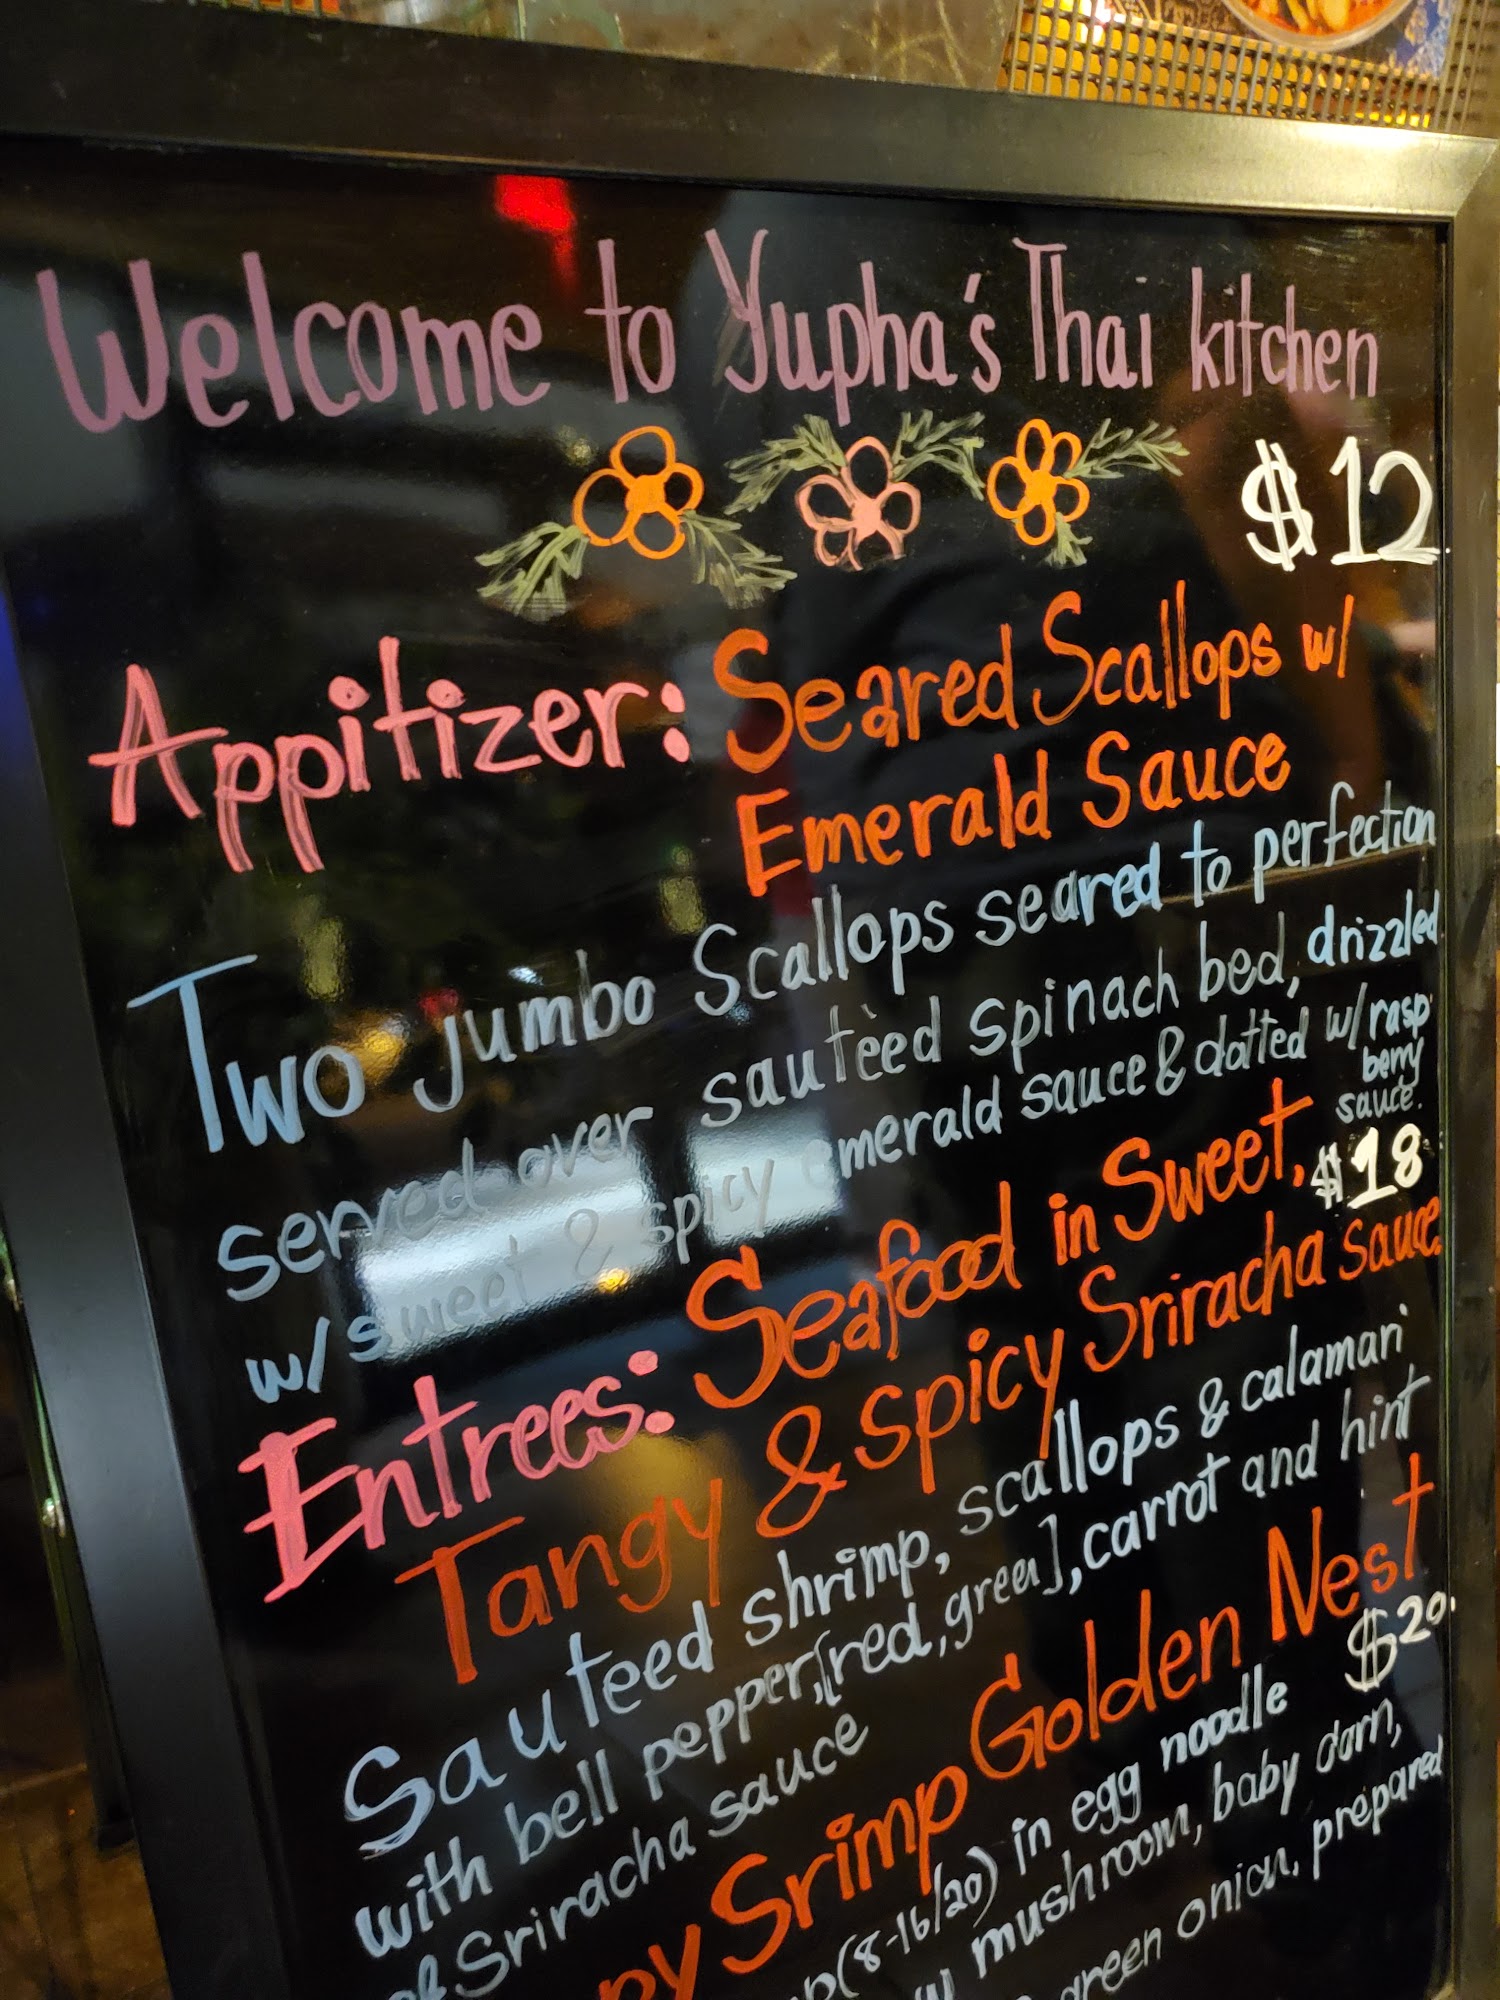 Welcome to Yupha's Thai kitchen
$12
Appitizer: Seared Scallops w/
Emerald Sauce
Two jumbo Scallops seared to perfection
served over sauteed spinach bed, drizzled
w/sweet & spicy emerald sauce & dotted w/rasp
berry
sauce.
Entrees: Seafood in Sweet, $18
Tangy & Spicy Sriracha sauce
Sauteed shrimp, scallops & calamari
with bell pepper,[red, green], carrot and hint
of Sriracha sauce
Srimp Golden Nest
$20.
(8-16/20) in egg noodle
mushroom, baby corn,
green onion, prepared